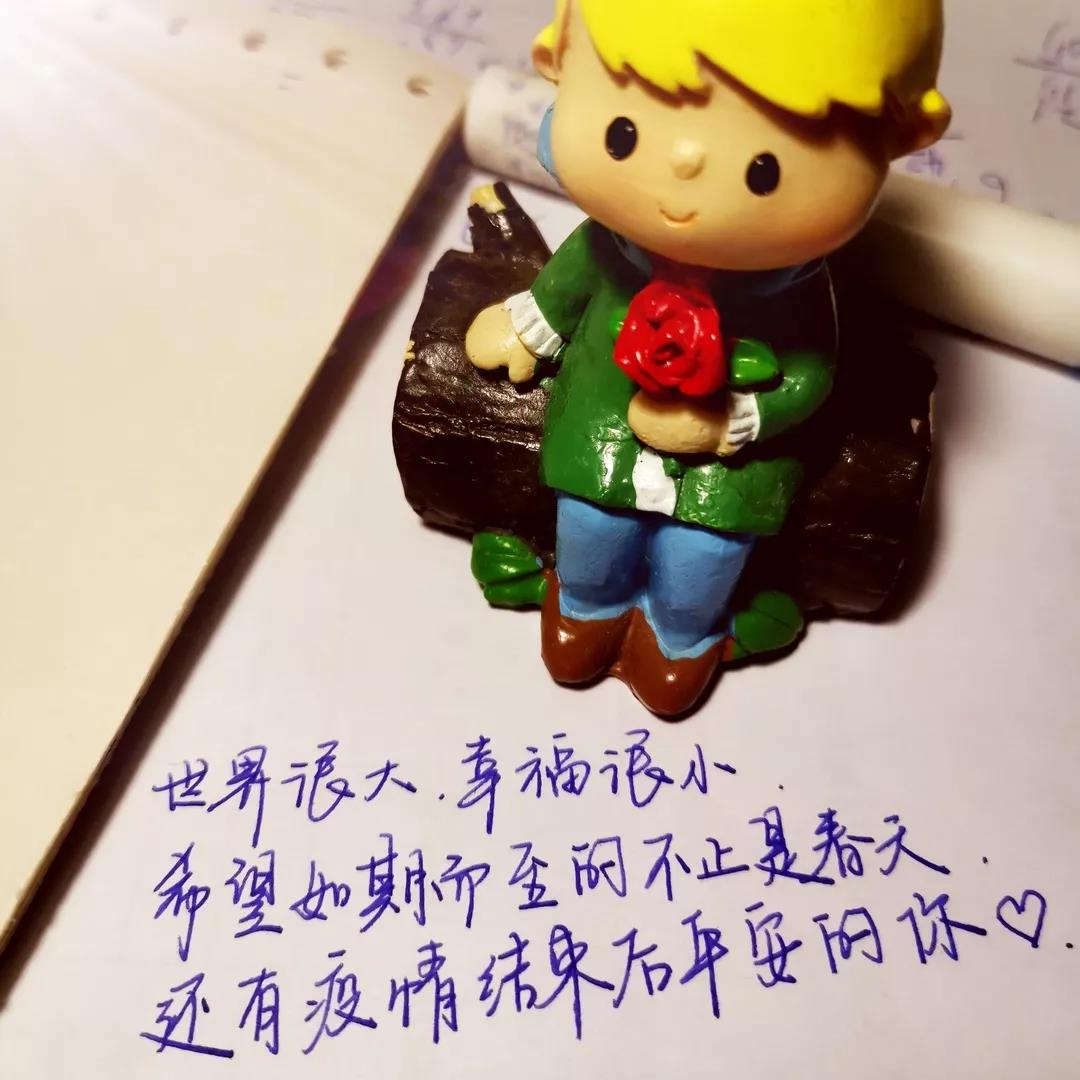 世界很大.幸福很小.
希望如期而至的不止是春天.
还有疫情结束后平安的你♡.